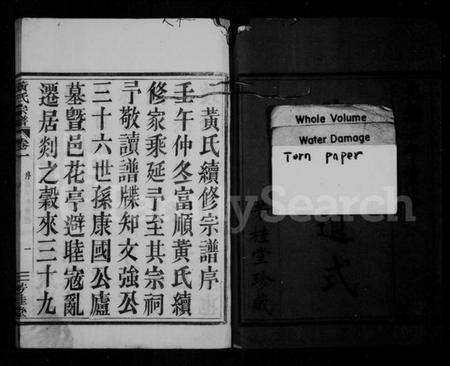 黃氏續修宗譜序
壬午仲冬富順黃氏續
修家乘延予至其宗祠
予敬讀譜牒知文強公
三十六世孫康國公廬
墓暨邑花亭避睦寇亂
遷居剡之穀來三十九
黃氏宗譜 卷一 序 一
Whole Volume
Water Damage
Torn paper
桂堂珍藏
式
MySearch